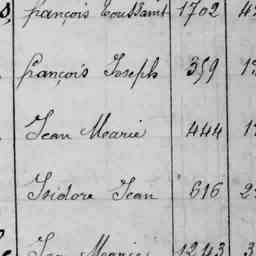 françois Toussaint 1702
françois Joseph 359
Jean Marie 444
Isidore Jean 616
Marie 1243